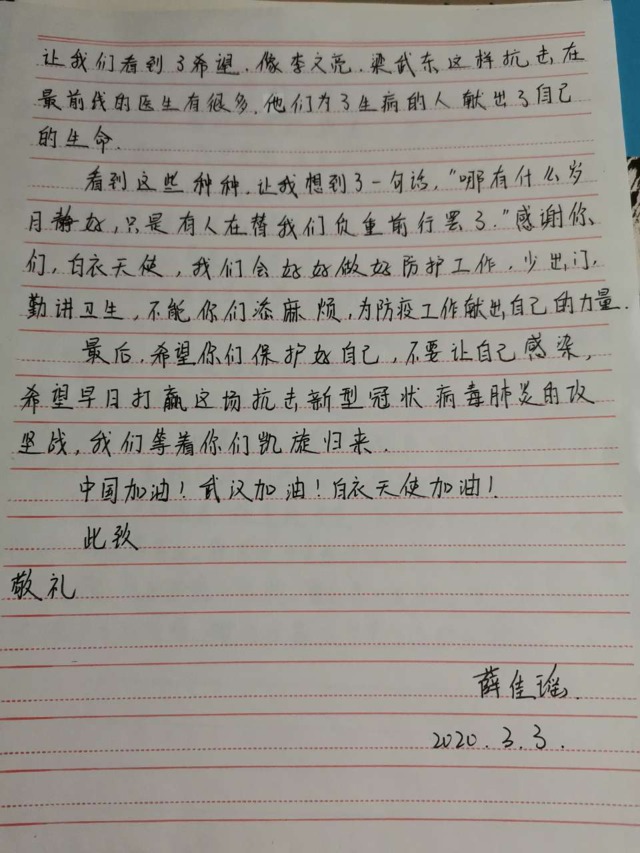 让我们看到了希望.像李文亮.梁武东这样抗击在
最前线的医生有很多.他们为了生病的人献出了自己
的生命.
看到这些种种.让我想到了一句话，"哪有什么岁
月静好，只是有人在替我们负重前行罢了."感谢你
们，白衣天使，我们会好好做好防护工作，少出门，
勤讲卫生，不能你们添麻烦，为防疫工作献出自己的力量.
最后，希望你们保护好自己，不要让自己感染，
希望早日打赢这场抗击新型冠状病毒肺炎的攻
坚战，我们等着你们凯旋归来.
中国加油！武汉加油！白衣天使加油！
此致
敬礼
薛佳瑶.
2020.3.3.